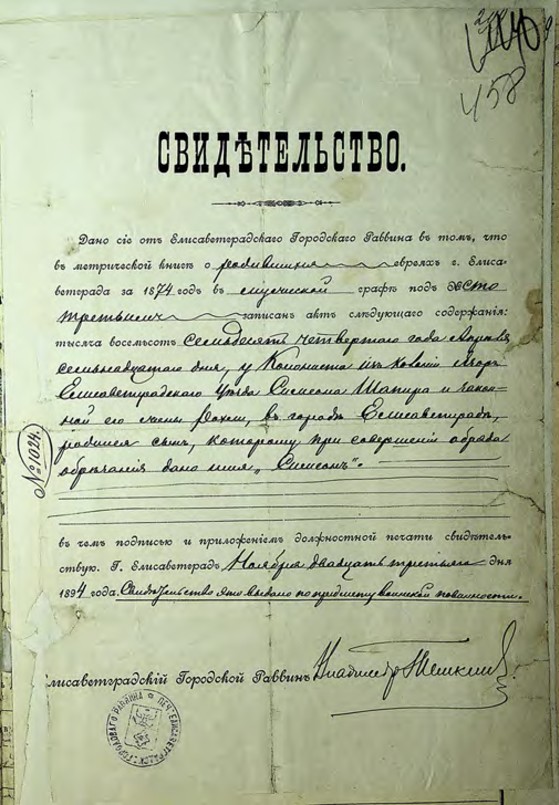 458
СВИДѢТЕЛЬСТВО.
Дано сіе отъ Елисаветградскаго Городскаго Раввина въ томъ, что
въ метрической книгѣ о родившихся евреяхъ г. Елиса-
ветграда за 1874 годъ въ мужской графѣ подъ № сто
третьимъ записанъ актъ слѣдующаго содержанія:
тысяча восемьсотъ семьдесятъ четвертого года Апрѣля
семьнадцатого дня, у Колониста изъ колоніи
Елисаветградскаго уѣзда Симсона Шапира и закон-
ной его жены Рохли, въ городѣ Елисаветградѣ,
родился сынъ, которому при совершеніи обряда
обрѣзанія дано имя „Симсонъ".
№ 1024.
въ чемъ подписью и приложеніемъ должностной печати свидѣтель-
ствую. Г. Елисаветградъ, Ноября двадцать третьяго дня
1894 года. Свидѣтельство это выдано по предмету воинской повинности.
Елисаветградскій Городской Раввинъ Владиміръ